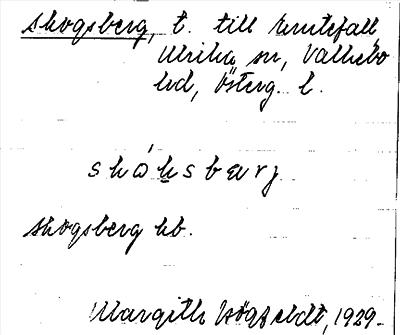 Skogsberg, t. till Rentefall,
Ulrika sn, Valkebo
hd, Österg. l.
skȯksbærj
Skogsberg hb.
Margith Högfeldt, 1929.